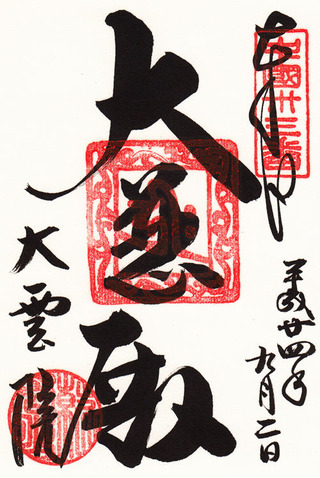 奉拝
中國卅三番
平成廿四年
九月二日
大慈殿
大雲院